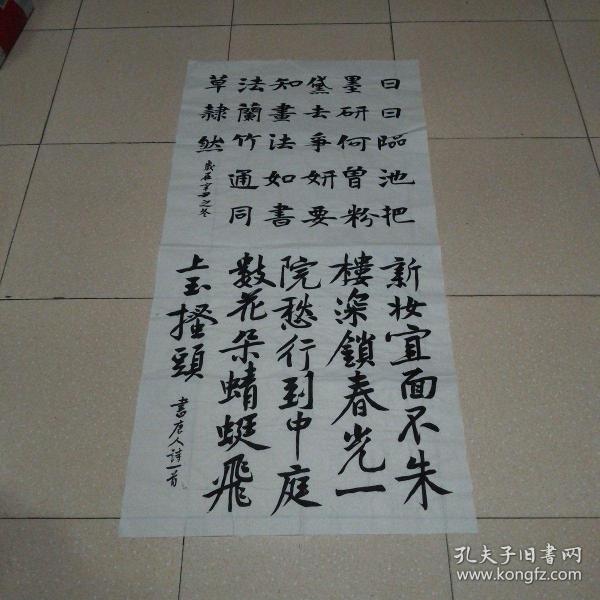 日日臨池把
墨研何曾粉
黛去爭妍要
知畫法如書
法蘭竹通同
草隸然
歲在辛丑之冬
新妆宜面不朱
樓深鎖春光一
院愁行到中庭
數花朵蜻蜓飛
上玉搔頭
書唐人詩一首
孔夫子旧书网
www.kongfz.com